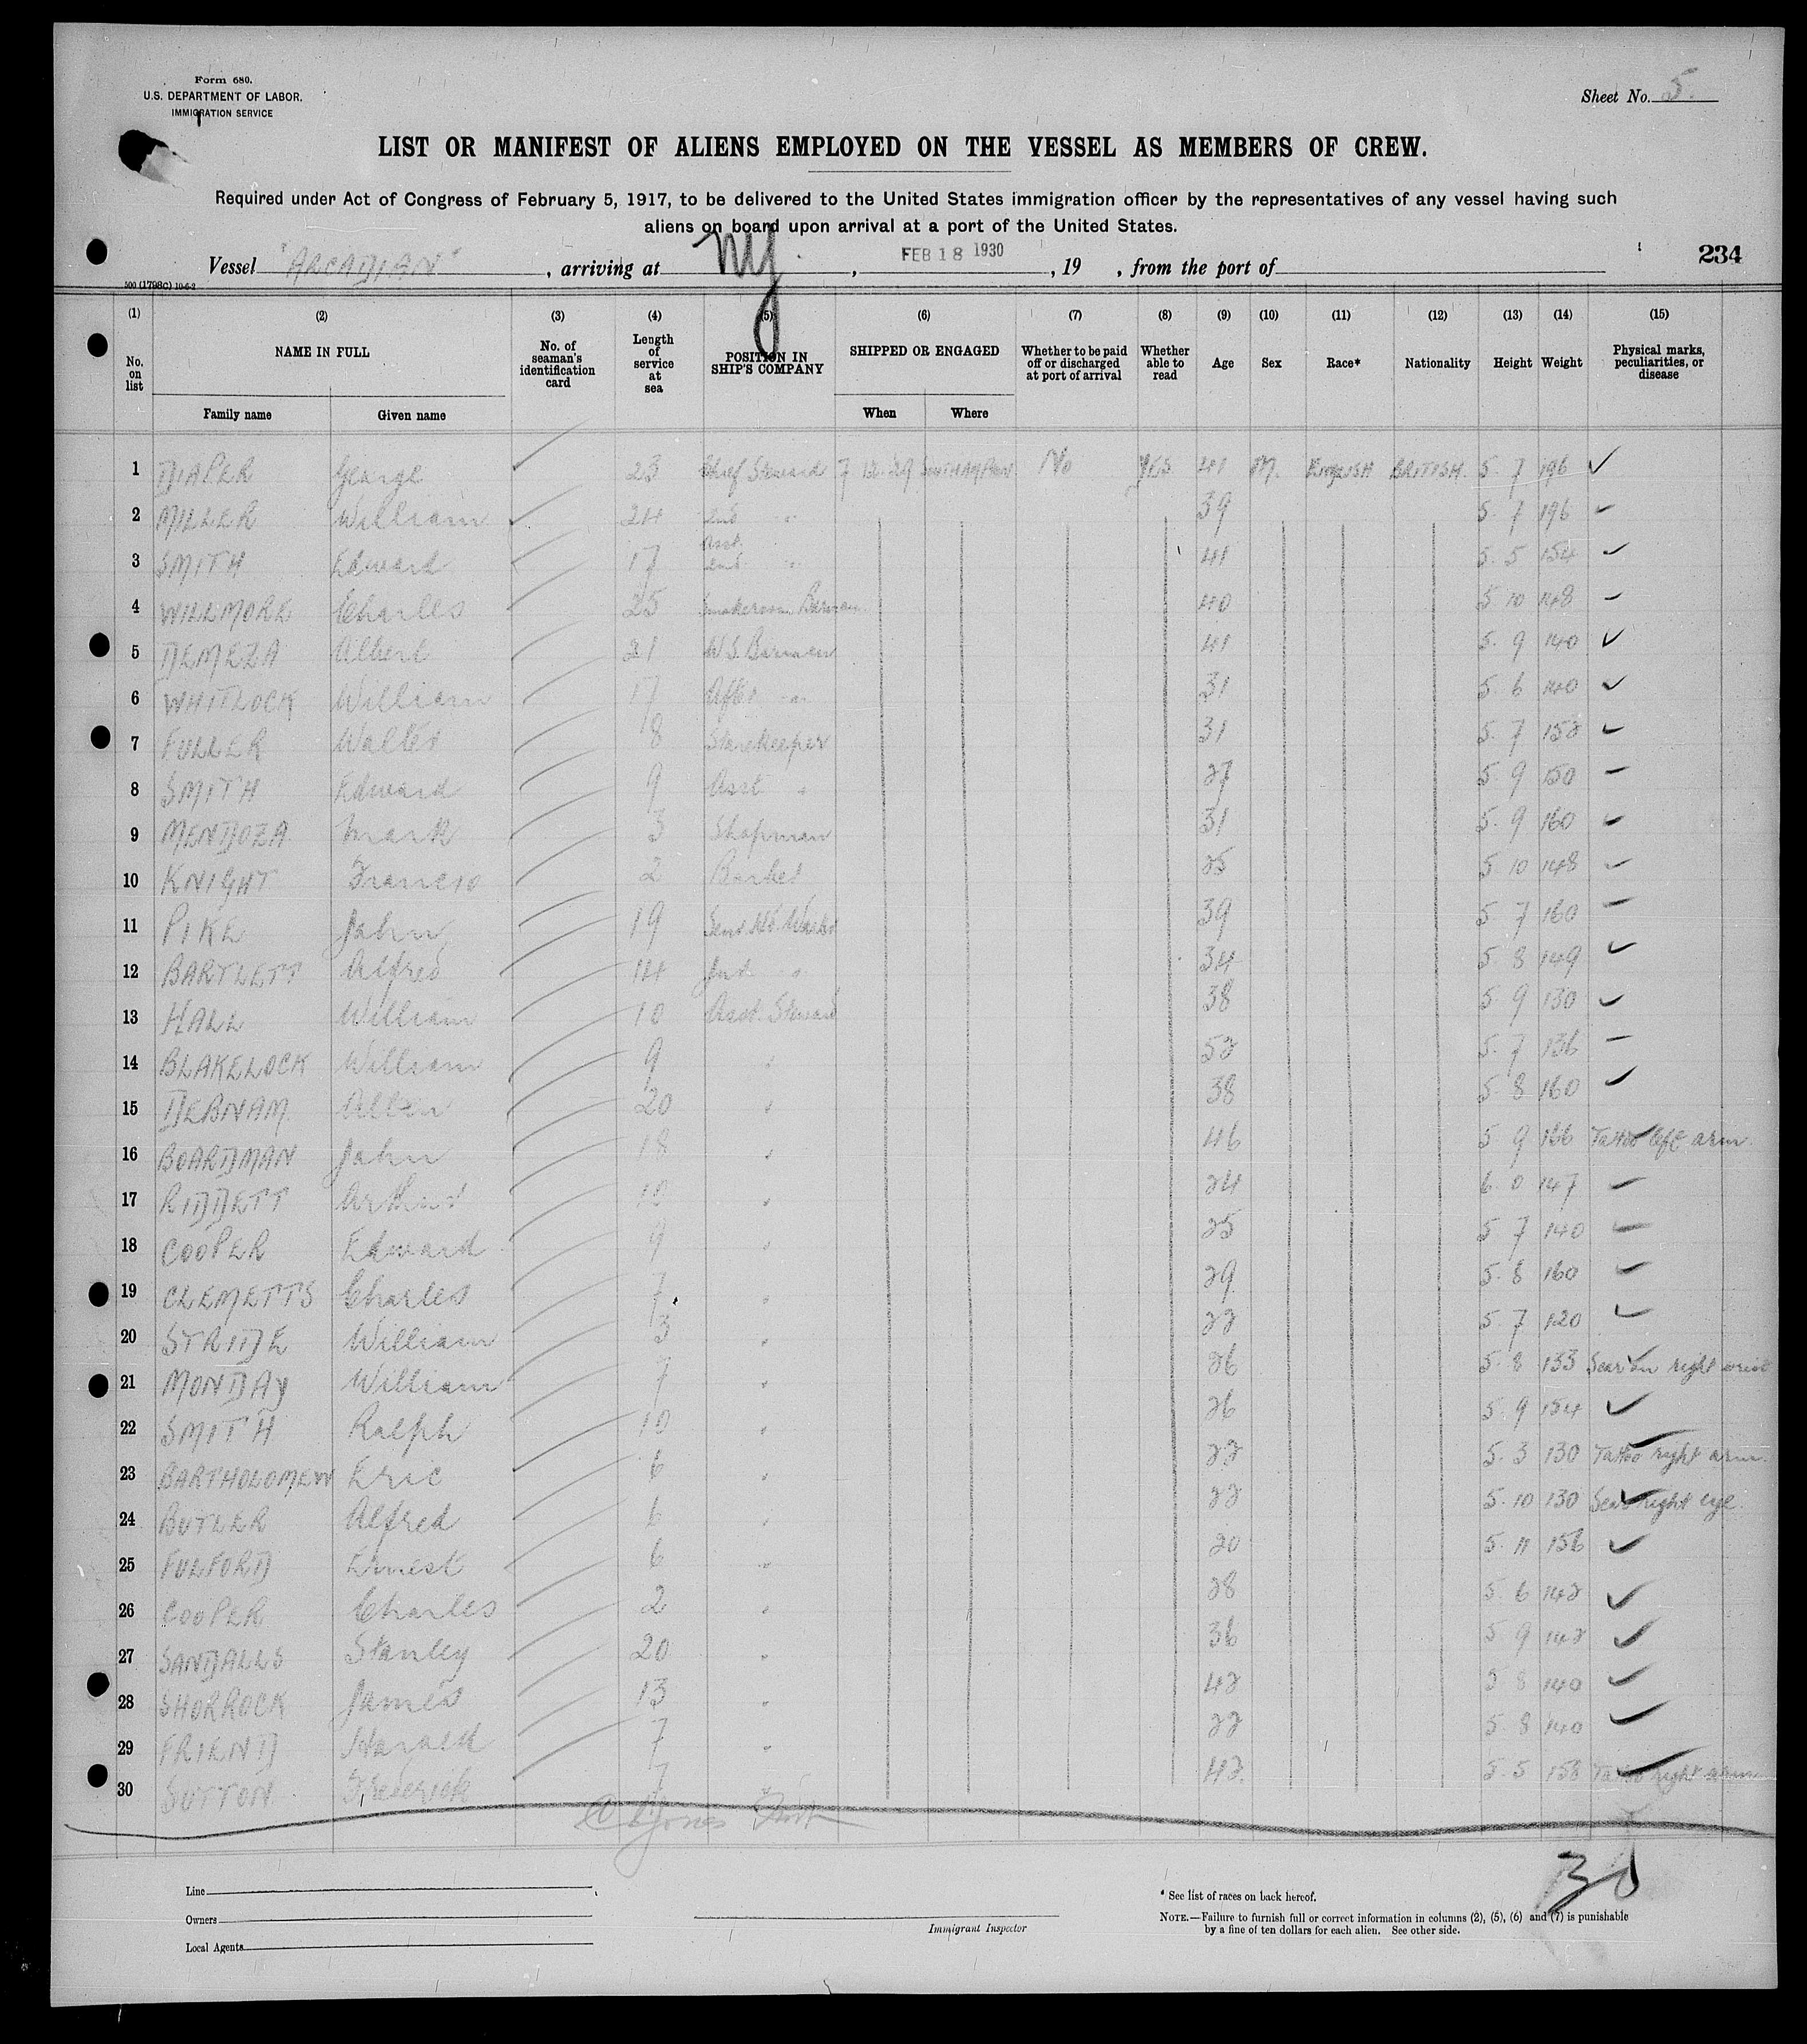 Form 680.
U.S. DEPARTMENT OF LABOR.
IMMIGRATION SERVICE
Sheet No. 5.
LIST OR MANIFEST OF ALIENS EMPLOYED ON THE VESSEL AS MEMBERS OF CREW.
Required under Act of Congress of February 5, 1917, to be delivered to the United States immigration officer by the representatives of any vessel having such
aliens on board upon arrival at a port of the United States.
Vessel "ARCADIAN", arriving at NY., FEB 18 1930, 19 , from the port of
234
500 (1798c) 10-6-2
(1) (2) (3) (4) (5) (6) (7) (8) (9) (10) (11) (12) (13) (14) (15)
No. on list NAME IN FULL No. of seaman's identification card Length of service at sea POSITION IN SHIP'S COMPANY SHIPPED OR ENGAGED Whether to be paid off or discharged at port of arrival Whether able to read Age Sex Race* Nationality Height Weight Physical marks, peculiarities, or disease
Family name Given name When Where
1 DIAPER George 23 Chief Steward 7 12 29 SOUTHAMPTON No YES 41 M. ENGLISH BRITISH. 5 7 196
2 MILLER William 24 2nd " 39 5. 7 196
3 SMITH Edward 17 Asst. 2nd " 41 5. 5 154
4 WILLMORE Charles 25 Smokeroom Barman 40 5 10 148
5 DEMEZA Albert 21 W.S. Barman 41 5. 9 140
6 WHITLOCK William 17 After " 31 5. 6 140
7 FULLER Walter 8 Storekeeper 31 5. 7 152
8 SMITH Edward 9 Asst " 27 5 9 150
9 MENDOZA Mark 3 Shopman 31 5. 9 160
10 KNIGHT Francis 2 Barber 25 5 10 148
11 PIKE John 19 39 5 7 160
12 BARTLETT Alfred 14 2nd " 34 5 8 149
13 HALL William 10 Asst. Steward 38 5 9 130
14 BLAKELOCK William 9 " 52 5. 7 136
15 DEBNAM Allen 20 " 38 5 8 160
16 BOARDMAN John 18 " 46 5 9 166 Tattoo left arm.
17 RIDDETT Arthur 10 " 24 6. 0 147
18 COOPER Edward 9 " 25 5 7 140
19 CLEMETTS Charles 7 " 29 5. 8 160
20 STRIDE William 3 " 22 5. 7 120
21 MONDAY William 7 " 26 5. 8 133 Scar on right wrist
22 SMITH Ralph 10 " 26 5. 9 154
23 BARTHOLOMEW Eric 6 " 22 5. 3 130 Tattoo right arm.
24 BUTLER Alfred 6 " 22 5. 10 130 Scar right eye.
25 FULFORD Ernest 6 " 20 5. 11 156
26 COOPER Charles 2 " 28 5. 6 142
27 SANDALLS Stanley 20 " 36 5 9 142
28 SHORROCK James 13 " 42 5 8 140
29 FRIEND Harold 7 " 22 5. 8 140
30 SUTTON Frederick 7 " 42. 5. 5 158 Tattoo right arm
Jones
30
Line
Owners
Local Agents
Immigrant Inspector
* See list of races on back hereof.
NOTE.—Failure to furnish full or correct information in columns (2), (5), (6) and (7) is punishable
by a fine of ten dollars for each alien. See other side.